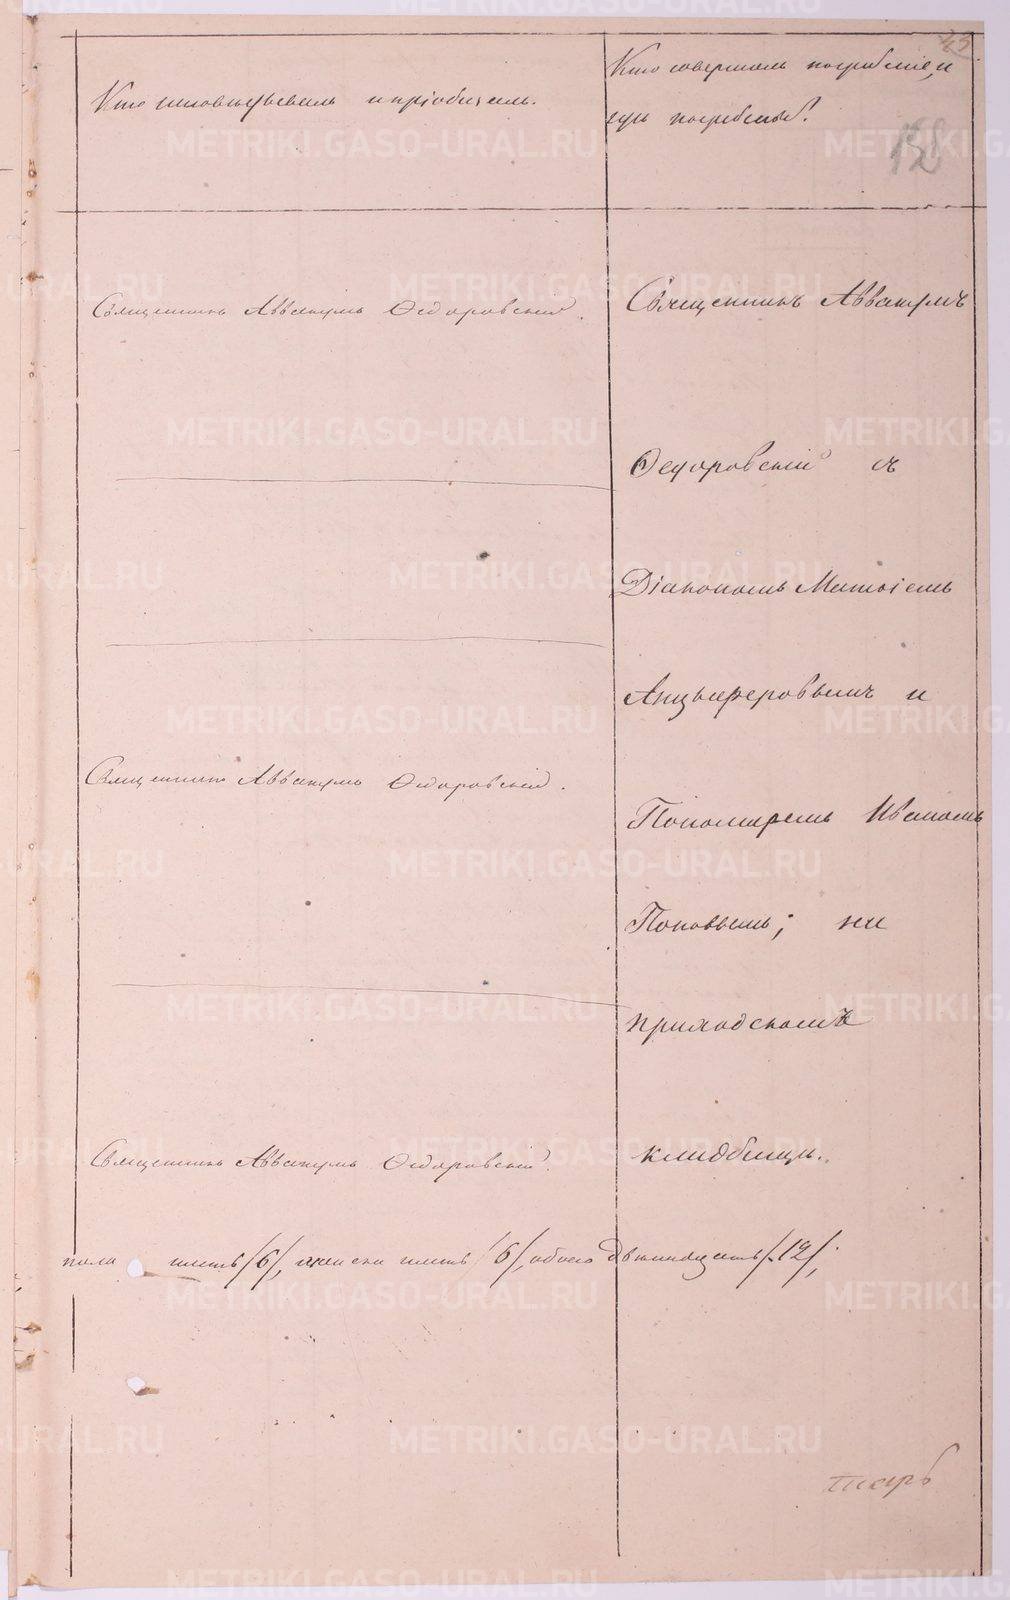 43
Кто исповѣдывалъ и пріобщалъ.
Кто совершалъ погребеніе, и
гдѣ погребены?
Священникъ Аввакумъ Ѳедоровскій.
Священникъ Аввакумъ
Ѳедоровскій съ
Діакономъ Матѳіемъ
Анцыферовымъ и
Священникъ Аввакумъ Ѳедоровскій.
Пономаремъ Иваномъ
Поповымъ; на
приходскомъ
Священникъ Аввакумъ Ѳедоровскій.
кладбищѣ.
пола шесть /6/, женска шесть /6/, обоего двѣнадцать /12/.
METRIKI.GASO-URAL.RU